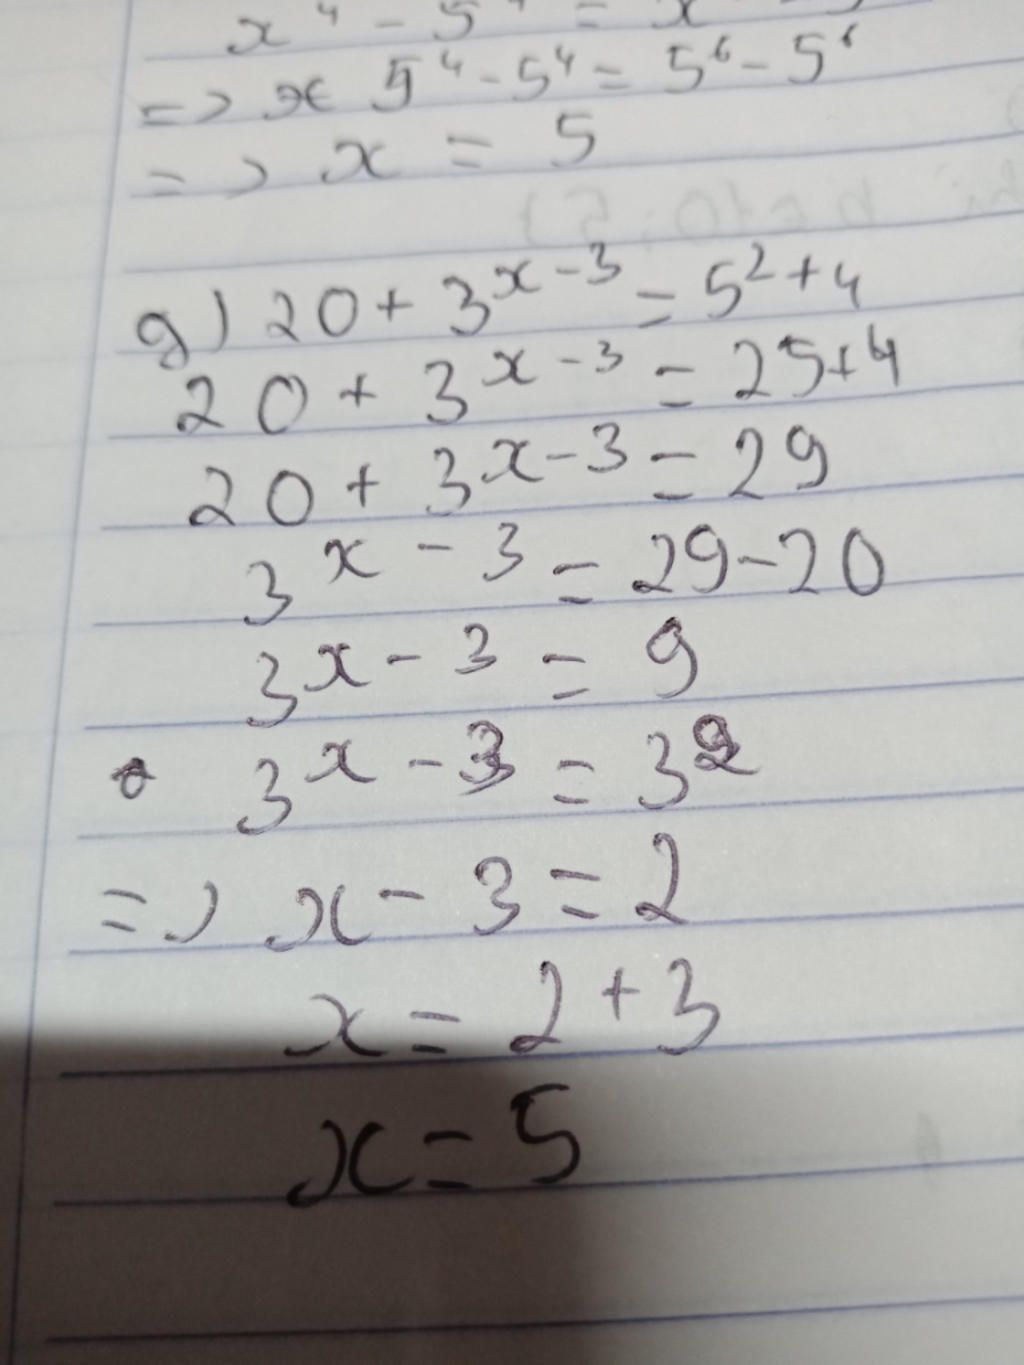 x⁴ - 5⁴ = x
=> x 5⁴ - 5⁴ = 5⁶ - 5⁶
=> x = 5
g) 20 + 3^(x - 3) = 5² + 4
20 + 3^(x - 3) = 25 + 4
20 + 3^(x - 3) = 29
3^(x - 3) = 29 - 20
3^(x - 3) = 9
3^(x - 3) = 3²
=> x - 3 = 2
x = 2 + 3
x = 5